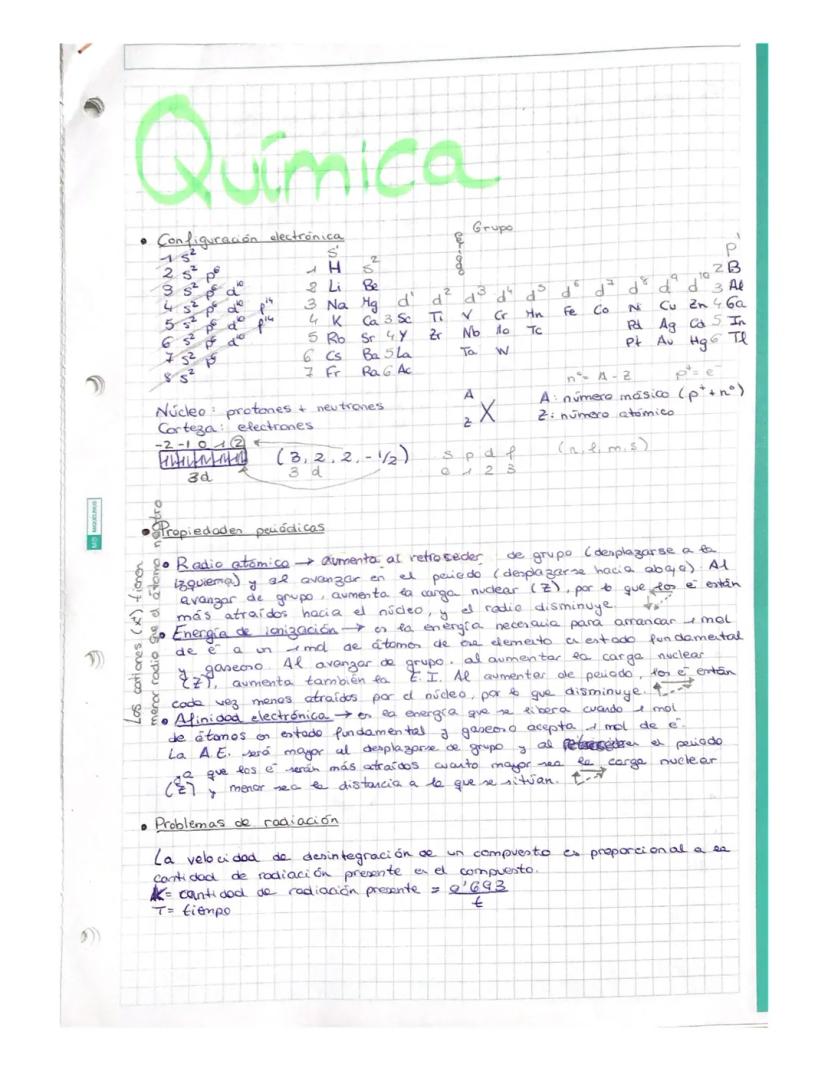 Química
• Configuración electrónica
Grupo
Periodo
1 s²
2 s² p⁶
3 s² p⁶ d¹⁰
4 s² p⁶ d¹⁰ f¹⁴
5 s² p⁶ d¹⁰ f¹⁴
6 s² p⁶ d¹⁰
7 s² p⁶
8 s²
s¹ p¹
1 H s² 2 B
2 Li Be 3 Al
3 Na Mg d¹ d² d³ d⁴ d⁵ d⁶ d⁷ d⁸ d⁹ d¹⁰
4 K Ca 3 Sc Ti V Cr Mn Fe Co Ni Cu Zn 4 Ga
5 Rb Sr 4 Y Zr Nb Mo Tc Pd Ag Cd 5 In
6 Cs Ba 5 La Ta W Pt Au Hg 6 Tl
7 Fr Ra 6 Ac
n°= A - Z p⁺= e⁻
Núcleo: protones + neutrones
Corteza: electrones
A
Z X
A: número másico (p⁺+n°)
Z: número atómico
-2 -1 0 1 2
3d
(3, 2, 2, -1/2)
3 d
s p d f
0 1 2 3
(n, l, m, s)
• Propiedades periódicas
Los cationes (x⁺) tienen
menor radio que el átomo neutro
• Radio atómico → aumenta al retroceder de grupo (desplazarse a la
izquierda) y al avanzar en el periodo (desplazarse hacia abajo). Al
avanzar de grupo, aumenta la carga nuclear (Z), por lo que los e⁻ están
más atraídos hacia el núcleo, y el radio disminuye.
• Energía de ionización → es la energía necesaria para arrancar 1 mol
de e⁻ a un 1 mol de átomos de ese elemento en estado fundamental
y gaseoso. Al avanzar de grupo, al aumentar la carga nuclear
(Z), aumenta también la E.I. Al aumentar de periodo, los e⁻ están
cada vez menos atraídos por el núcleo, por lo que disminuye.
• Afinidad electrónica → es la energía que se libera cuando 1 mol
de átomos en estado fundamental y gaseoso acepta 1 mol de e⁻.
La A.E. será mayor al desplazarse de grupo y al retroceder el periodo
ya que los e⁻ serán más atraídos cuanto mayor sea la carga nuclear
(Z) y menor sea la distancia a la que se sitúan.
• Problemas de radiación
La velocidad de desintegración de un compuesto es proporcional a la
cantidad de radiación presente en el compuesto.
K= cantidad de radiación presente = 0'693
t
T= tiempo